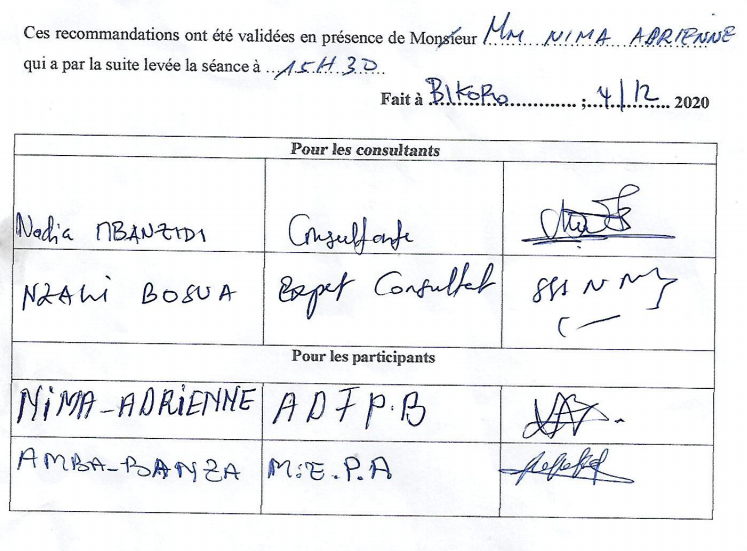 Ces recommandations ont été validées en présence de Monsieur Mm NIMA ADRIENNE
qui a par la suite levée la séance à ...15H30...
Fait à BIKORO............. ;....4/12... 2020
Pour les consultants
Nadia MBANZIDI Consultante
NZALI BOSUA Expet Consultat
Pour les participants
NiMA-ADRiENNE ADFP.B
AMBA-BANZA M.E.P.A